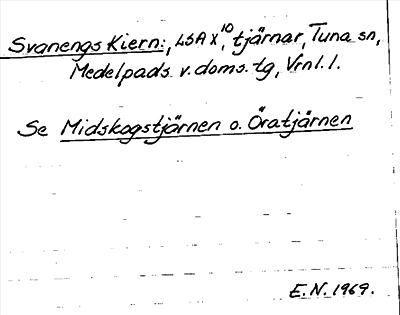 Svanengs Kiern:, LSA X¹⁰, tjärnar, Tuna sn,
Medelpads v. doms. tg, Vrnl. l.
Se Midskogstjärnen o. Öratjärnen
E.N. 1969.